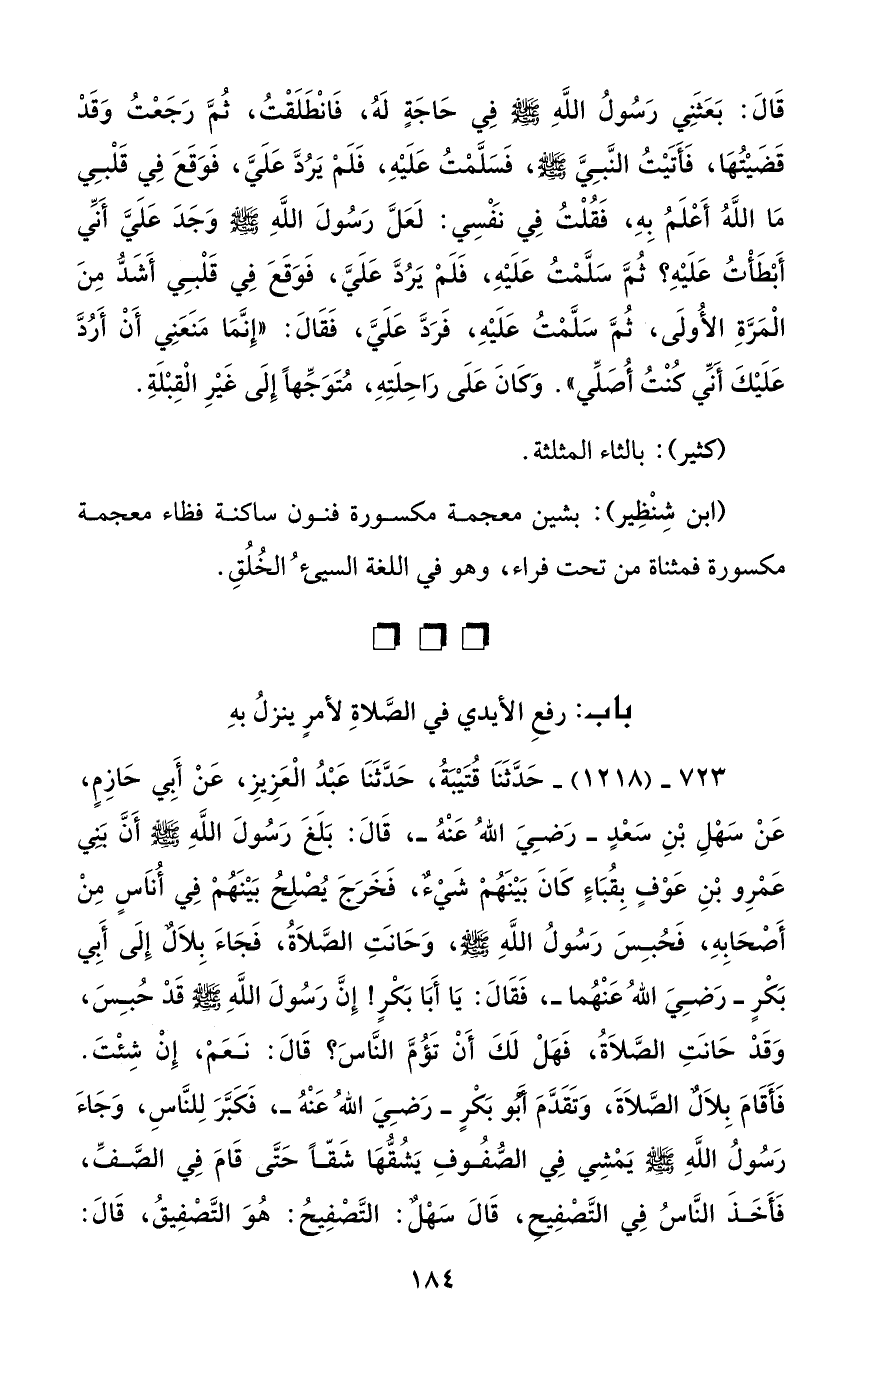 قَالَ: بَعَثَنِي رَسُولُ اللَّهِ ﷺ فِي حَاجَةٍ لَهُ، فَانْطَلَقْتُ، ثُمَّ رَجَعْتُ وَقَدْ
قَضَيْتُهَا، فَأَتَيْتُ النَّبِيَّ ﷺ، فَسَلَّمْتُ عَلَيْهِ، فَلَمْ يَرُدَّ عَلَيَّ، فَوَقَعَ فِي قَلْبِي
مَا اللَّهُ أَعْلَمُ بِهِ، فَقُلْتُ فِي نَفْسِي: لَعَلَّ رَسُولَ اللَّهِ ﷺ وَجَدَ عَلَيَّ أَنِّي
أَبْطَأْتُ عَلَيْهِ؟ ثُمَّ سَلَّمْتُ عَلَيْهِ، فَلَمْ يَرُدَّ عَلَيَّ، فَوَقَعَ فِي قَلْبِي أَشَدُّ مِنَ
الْمَرَّةِ الأُولَى، ثُمَّ سَلَّمْتُ عَلَيْهِ، فَرَدَّ عَلَيَّ، فَقَالَ: «إِنَّمَا مَنَعَنِي أَنْ أَرُدَّ
عَلَيْكَ أَنِّي كُنْتُ أُصَلِّي». وَكَانَ عَلَى رَاحِلَتِهِ، مُتَوَجِّهاً إِلَى غَيْرِ الْقِبْلَةِ.
(كثير): بالثاء المثلثة.
(ابن شِنْظِير): بشين معجمة مكسورة فنون ساكنة فظاء معجمة
مكسورة فمثناة من تحت فراء، وهو في اللغة السيىءُ الخُلُقِ.
باب: رفعِ الأيدي في الصَّلاةِ لأمرٍ ينزلُ بهِ
٧٢٣ ـ (١٢١٨) ـ حَدَّثَنَا قُتَيْبَةُ، حَدَّثَنَا عَبْدُ الْعَزِيزِ، عَنْ أَبِي حَازِمٍ،
عَنْ سَهْلِ بْنِ سَعْدٍ ـ رَضِيَ اللهُ عَنْهُ ـ، قَالَ: بَلَغَ رَسُولَ اللَّهِ ﷺ أَنَّ بَنِي
عَمْرِو بْنِ عَوْفٍ بِقُبَاءٍ كَانَ بَيْنَهُمْ شَيْءٌ، فَخَرَجَ يُصْلِحُ بَيْنَهُمْ فِي أُنَاسٍ مِنْ
أَصْحَابِهِ، فَحُبِسَ رَسُولُ اللَّهِ ﷺ، وَحَانَتِ الصَّلاَةُ، فَجَاءَ بِلاَلٌ إِلَى أَبِي
بَكْرٍ ـ رَضِيَ اللهُ عَنْهُما ـ، فَقَالَ: يَا أَبَا بَكْرٍ! إِنَّ رَسُولَ اللَّهِ ﷺ قَدْ حُبِسَ،
وَقَدْ حَانَتِ الصَّلاَةُ، فَهَلْ لَكَ أَنْ تَؤُمَّ النَّاسَ؟ قَالَ: نَعَمْ، إِنْ شِئْتَ.
فَأَقَامَ بِلاَلٌ الصَّلاَةَ، وَتَقَدَّمَ أَبُو بَكْرٍ ـ رَضِيَ اللهُ عَنْهُ ـ، فَكَبَّرَ لِلنَّاسِ، وَجَاءَ
رَسُولُ اللَّهِ ﷺ يَمْشِي فِي الصُّفُوفِ يَشُقُّهَا شَقّاً حَتَّى قَامَ فِي الصَّفِّ،
فَأَخَذَ النَّاسُ فِي التَّصْفِيحِ، قَالَ سَهْلٌ: التَّصْفِيحُ: هُوَ التَّصْفِيقُ، قَالَ:
١٨٤